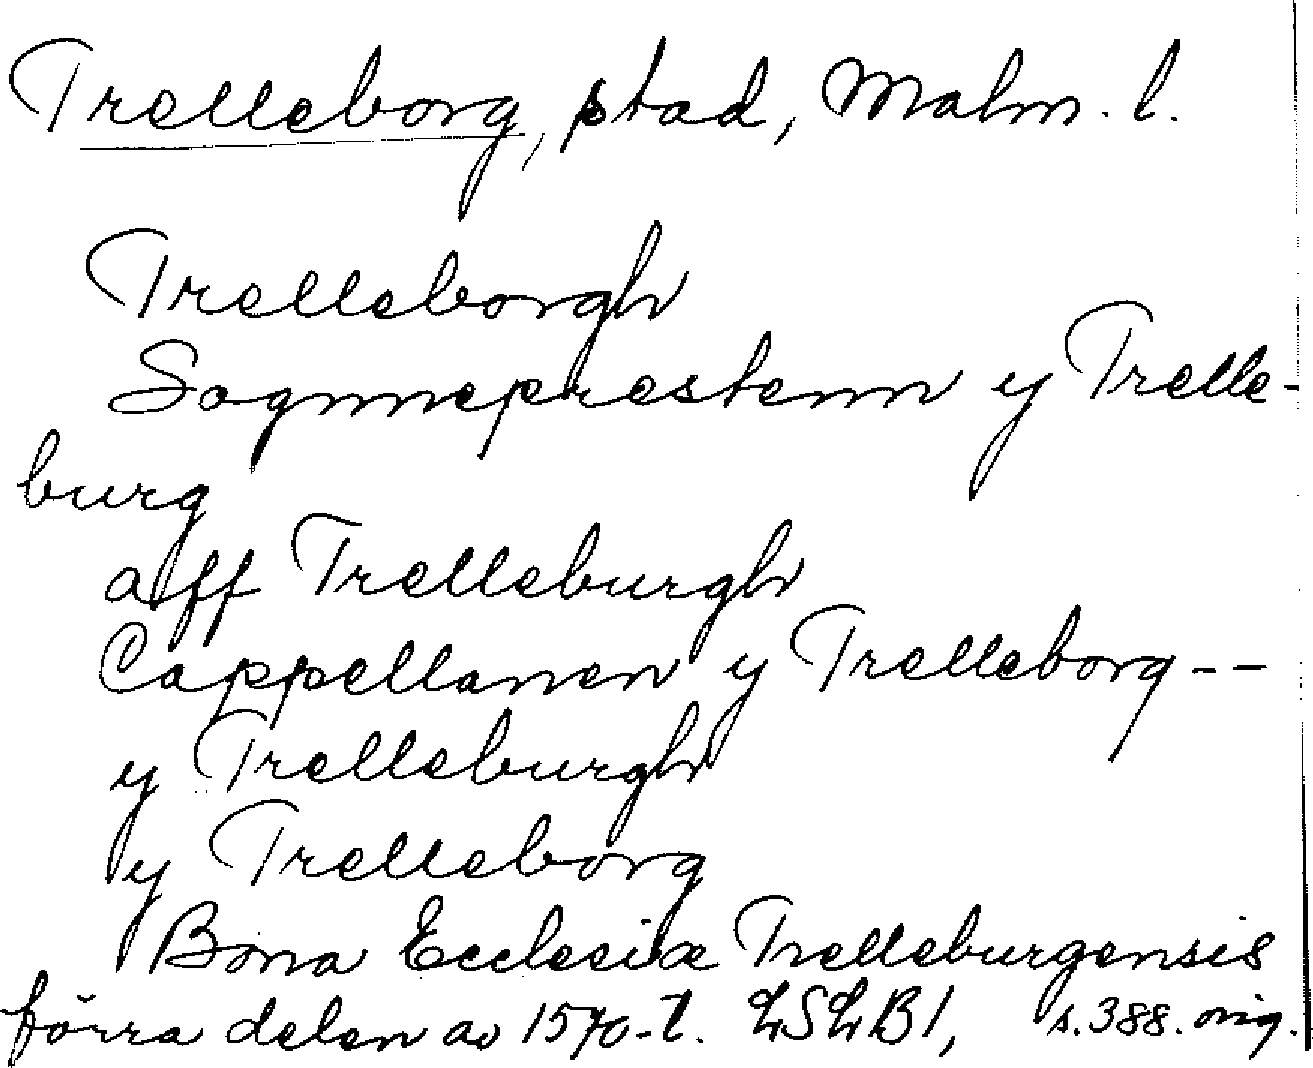 Trelleborg, stad, Malm. l.
Trelleborgh
Sognneprestenn y Trelle-
burg
aff Trelleburgh
Cappellanen y Trelleborg --
y Trelleburgh
y Trelleborg
Bona Ecclesiæ Trelleburgensis
förra delen av 1570-t. LSLB1, s. 388. orig.